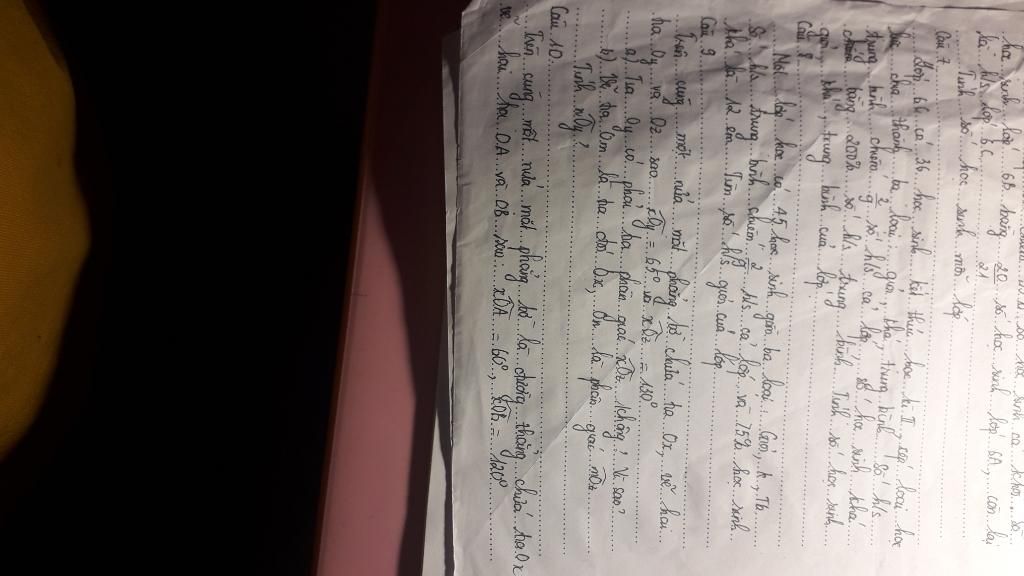 học sinh lớp 6B bằng 20/21 số học sinh lớp 6A, còn lại
là h/s lớp 6C. Tính số học sinh mỗi lớp
Câu 7
Lớp 6b có 36 học sinh kết thúc học kì II, xếp loại học
lực chia thành ba loại: giỏi, khá, trung bình. Số h/s
trung bình chiếm 2/9 số h/s cả lớp, số học sinh khá
bằng 200% số h/s trung bình. Tính số học sinh
giỏi, khá, trung bình của lớp
Câu 8
Một lớp học có 45 học sinh gồm ba loại: Giỏi, k, Tb.
Số h/s trung bình chiếm 2/9 h/s cả lớp và 75% học sinh
khá là 12 em. Tìm số h/s giỏi của lớp
Câu 9
Trên cùng một nửa mặt phẳng bờ chứa tia Ox, vẽ hai
tia Oy và Oz sao xOy = 65° và xOz = 130°
a) Tia Oy có phải tia phân giác xOz không? Vì sao?
b) Tk tia Om là tia đối Ox, On là phân giác mOz
Tính nOy?
Câu 10.
Trên cùng một nửa mặt phẳng bờ là đường thẳng chứa tia Ox
vẽ hai tia OA và OB sao xOA = 60°, xOB = 120°